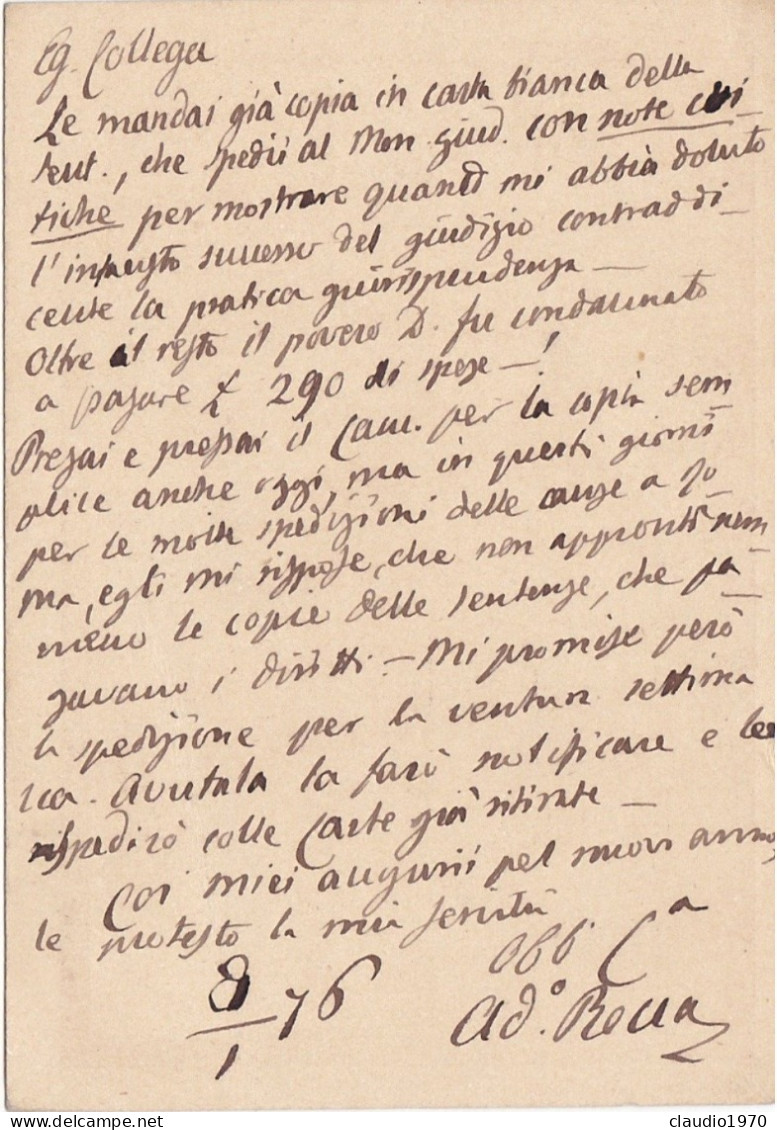 Eg. Collega
Le mandai già copia in carta bianca della
sent., che spedii al Mon. giud. con note cri-
tiche per mostrare quanto mi abbia doluto
l'infausto successo del giudizio contraddi-
cente la pratica giurisprudenza —
Oltre il resto il povero D. fu condannato
a pagare £ 290 di spese —!
Pregai e pregai il Canc. per la copia sem
plice anche oggi, ma in questi giorni
per le molte spedizioni delle cause a Ro-
ma, egli mi rispose, che non appronta nem
meno le copie delle sentenze, che pa-
gavano i diritti. — Mi promise però
la spedizione per la ventura settima
na. Avutala la farò notificare e le
rispedirò colle Carte già ritirate —
Coi miei augurii pel nuov anno,
le protesto la mia servitù
Obb. Ca
8/1 76
Ado.
claudio1970